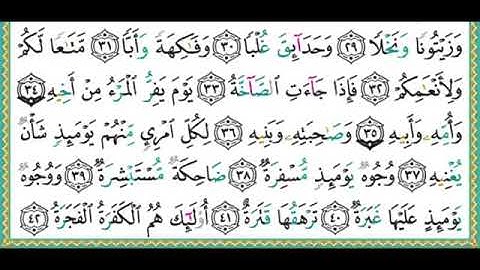 وَزَيْتُونًا وَنَخْلًا ٢٩ وَحَدَآئِقَ غُلْبًا ٣٠ وَفَاكِهَةً وَأَبًّا ٣١ مَّتَاعًا لَّكُمْ
وَلِأَنْعَامِكُمْ ٣٢ فَإِذَا جَآءَتِ الصَّآخَّةُ ٣٣ يَوْمَ يَفِرُّ الْمَرْءُ مِنْ أَخِيهِ ٣٤
وَأُمِّهِ وَأَبِيهِ ٣٥ وَصَاحِبَتِهِ وَبَنِيهِ ٣٦ لِكُلِّ امْرِئٍ مِّنْهُمْ يَوْمَئِذٍ شَأْنٌ
يُغْنِيهِ ٣٧ وُجُوهٌ يَوْمَئِذٍ مُّسْفِرَةٌ ٣٨ ضَاحِكَةٌ مُّسْتَبْشِرَةٌ ٣٩ وَوُجُوهٌ
يَوْمَئِذٍ عَلَيْهَا غَبَرَةٌ ٤٠ تَرْهَقُهَا قَتَرَةٌ ٤١ أُو۟لَٰٓئِكَ هُمُ الْكَفَرَةُ الْفَجَرَةُ ٤٢